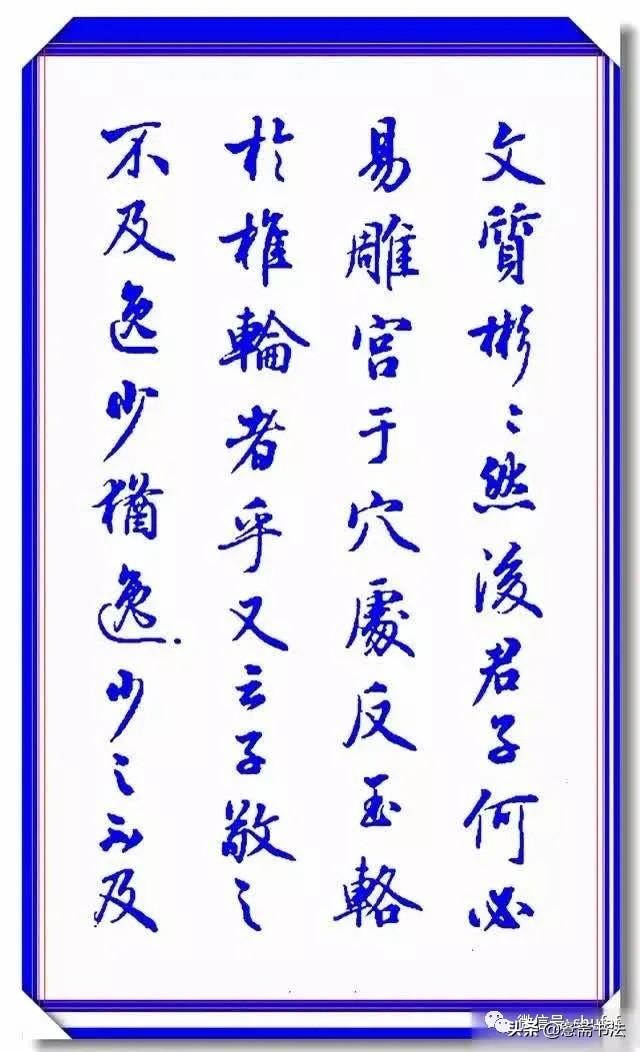 文質彬〻然後君子何必
易雕宮于穴處反玉輅
於椎輪者乎又云子敬之
不及逸少猶逸少之不及
头条@意斋书法